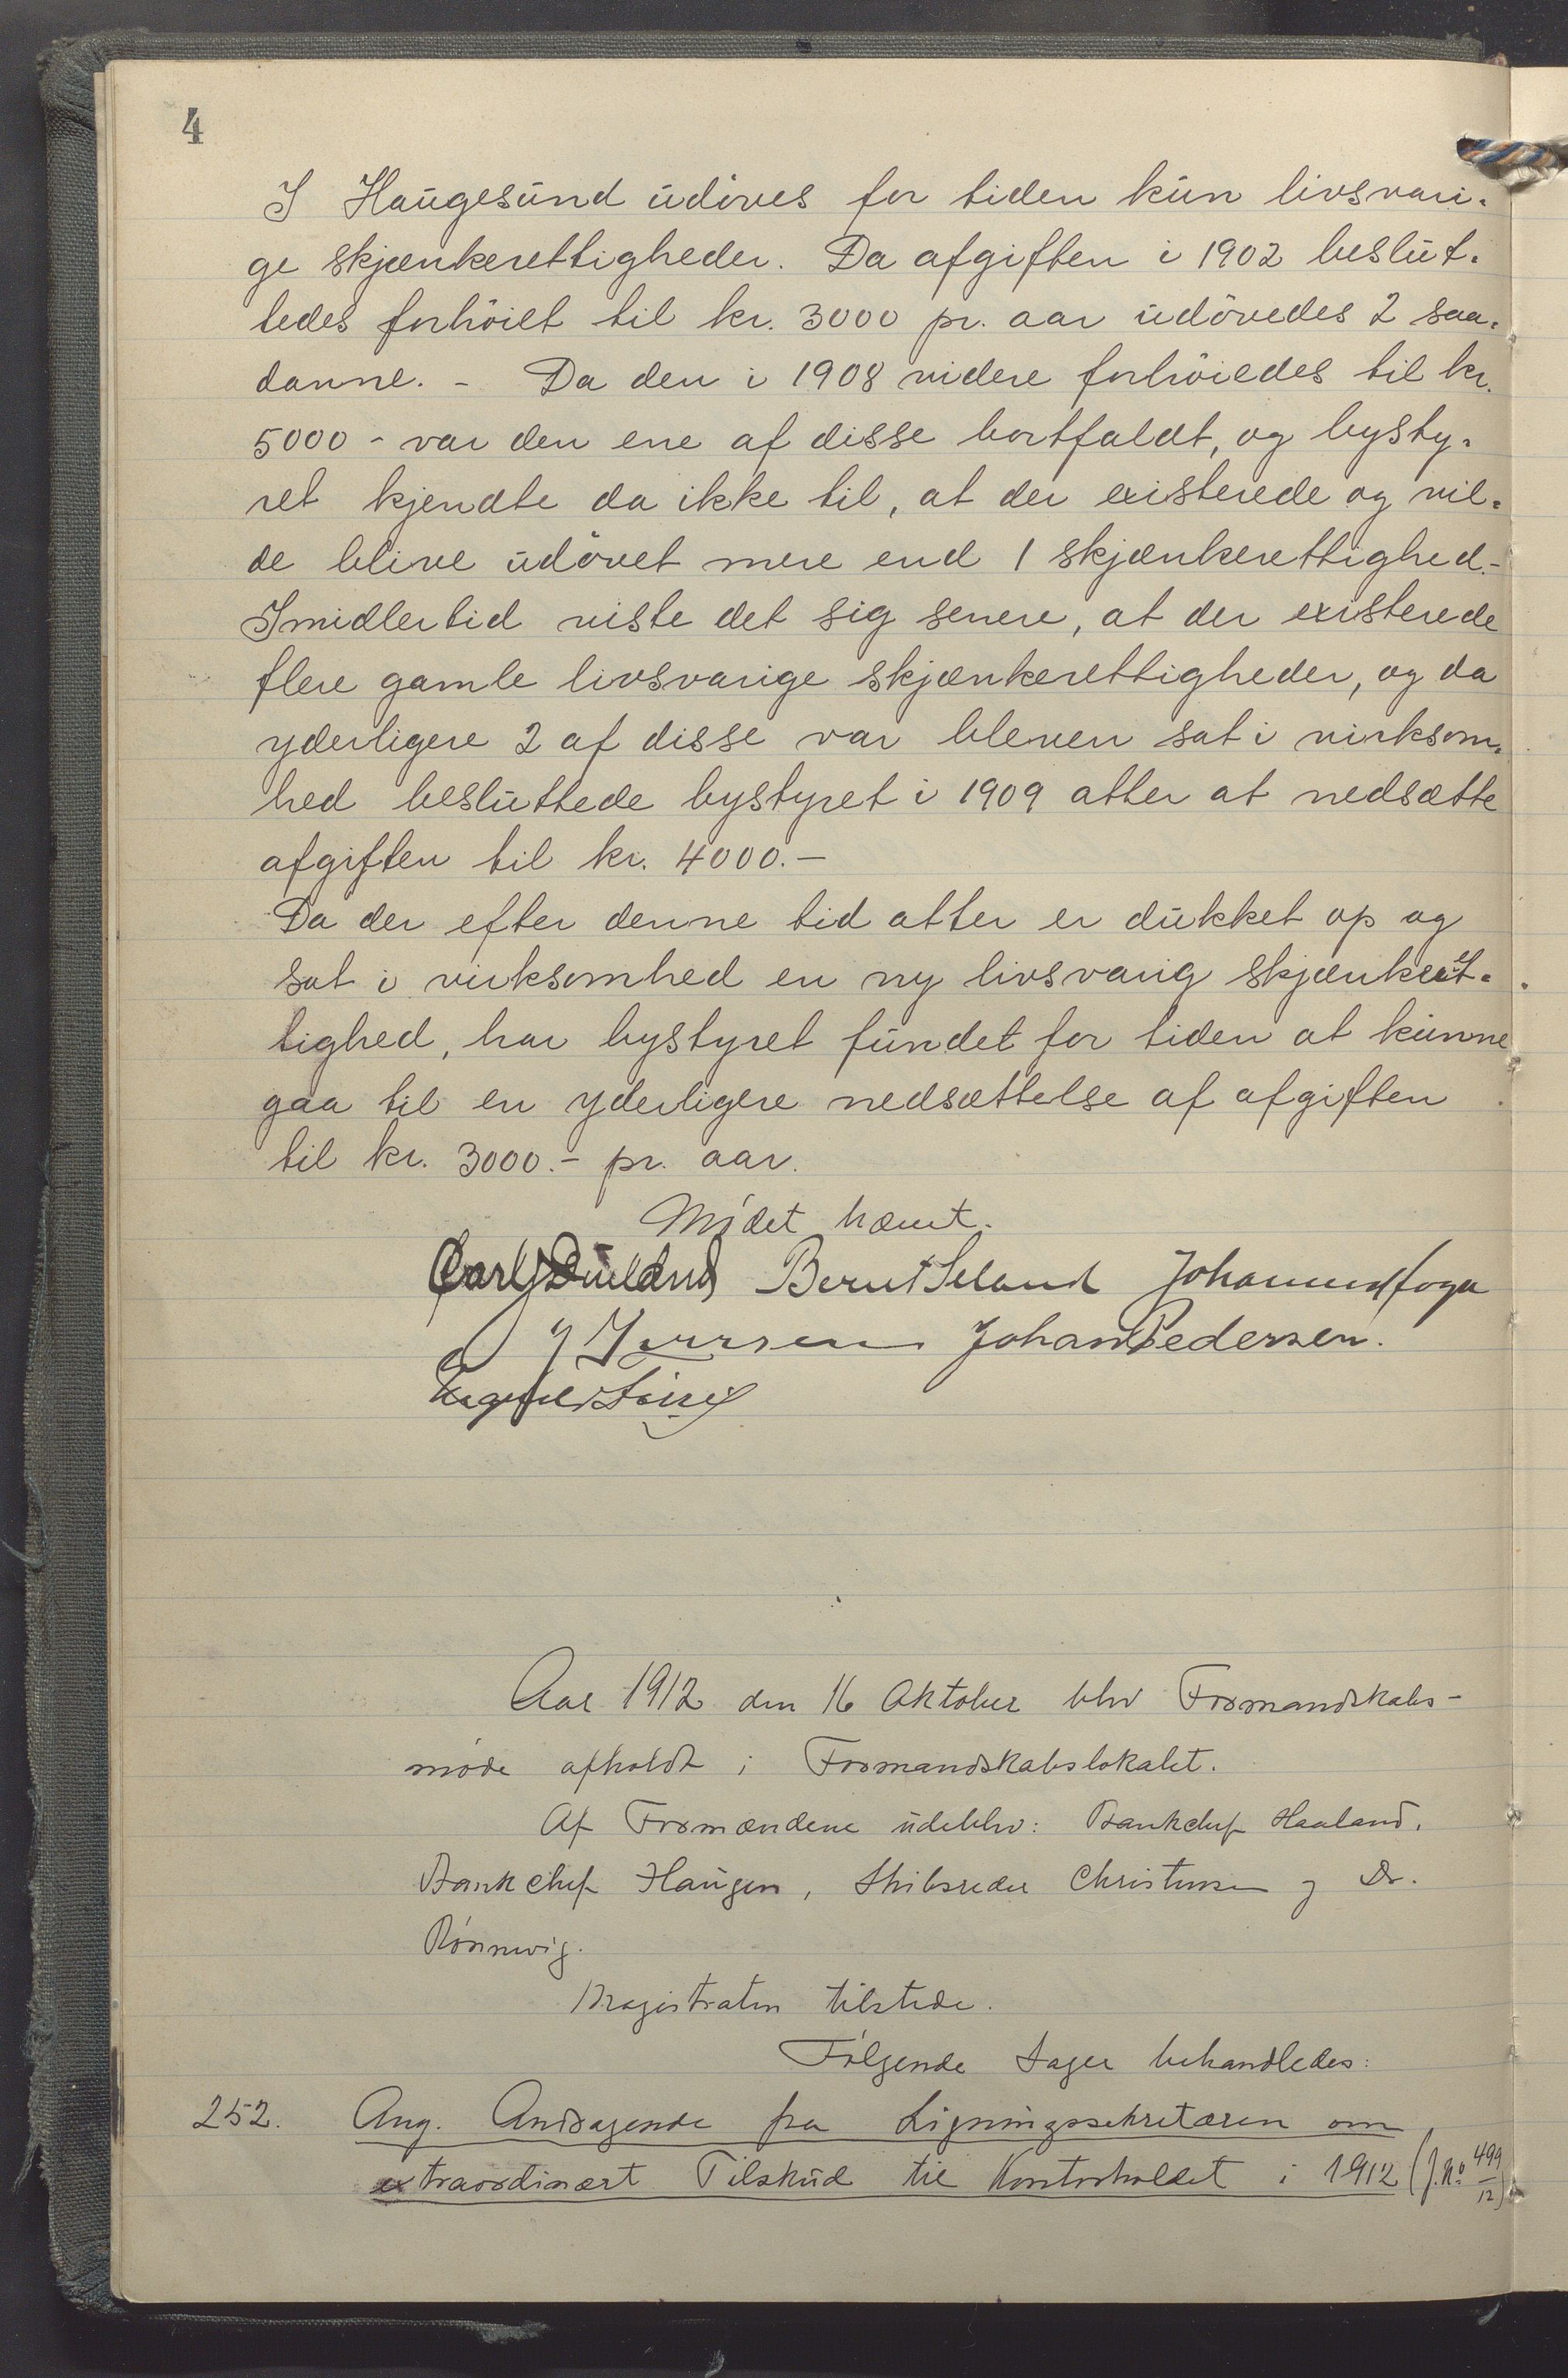 4
I Haugesund udöves for tiden kun livsvari-
ge skjænkerettigheder. Da afgiften i 1902 beslut-
tedes forhöiet til kr. 3000 pr. aar udövedes 2 saa-
danne. - Da den i 1908 videre forhöiedes til kr.
5000 - var den ene af disse bortfaldt, og bysty-
ret kjendte da ikke til, at der existerede og vil-
de blive udövet mere end 1 skjænkerettighed.-
Imidlertid viste det sig senere, at der existerede
flere gamle livsvarige skjænkerettigheder, og da
yderligere 2 af disse var bleven sat i virksom-
hed besluttede bystyret i 1909 atter at nedsætte
afgiften til kr. 4000.-
Da der efter denne tid atter er dukket op og
sat i virksomhed en ny livsvarig skjænkeret-
tighed, har bystyret fundet for tiden at kunne
gaa til en yderligere nedsættelse af afgiften
til kr. 3000.- pr. aar.
Mödet hævet.
Bernt Seland
Johan Pedersen.
Aar 1912 den 16 Oktober blev Formandskabs-
møde afholdt i Formandskabslokalet.
Af Formændene udeblev: Bankchef Haaland,
Bankchef Haugen, Skibsreder Christensen og Dr.
Rønnevig.
Magistraten tilstede.
Følgende Sager behandledes:
252. Ang. Andragende fra Ligningssekretæren om
extraordinært Tilskud til Kontorholdet i 1912 (J. No 499/12)